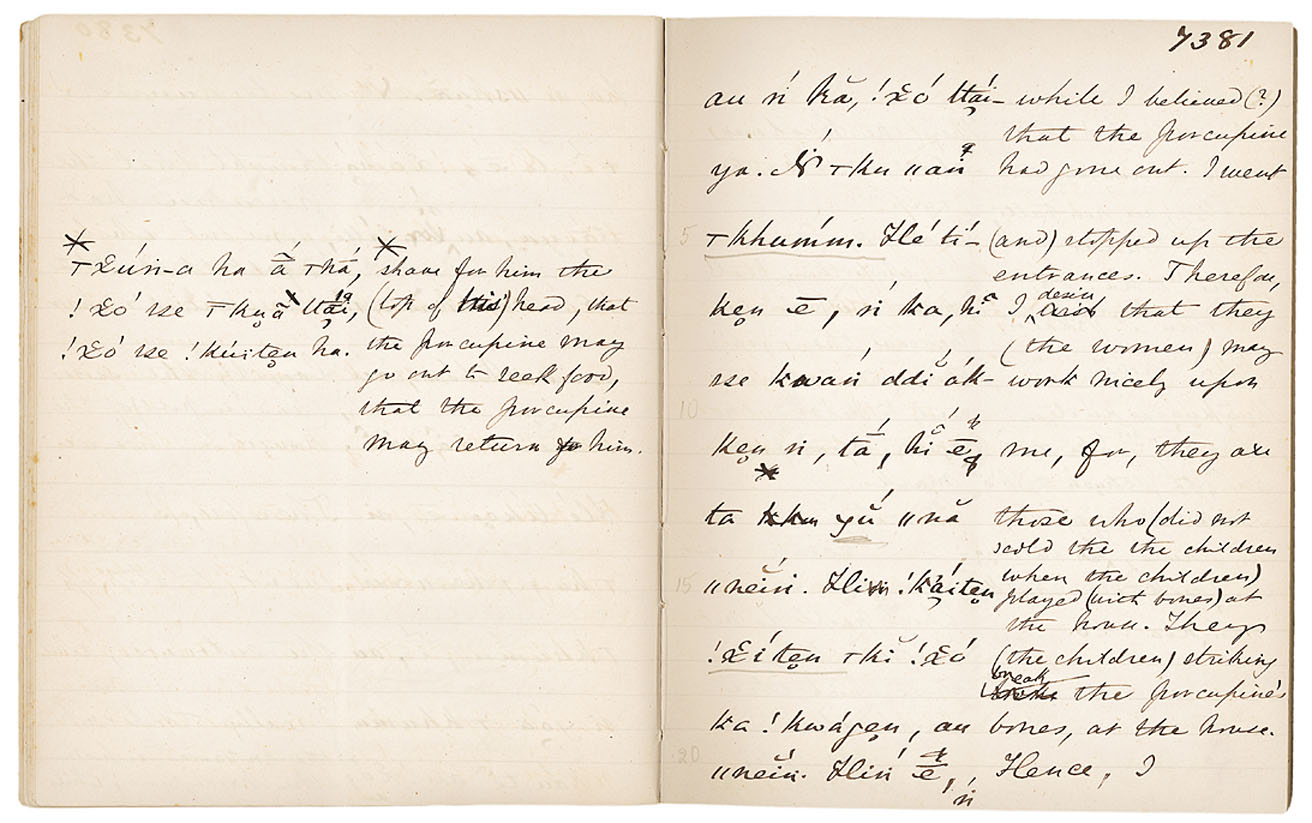 7381
⊤χú́n-a ha ā́ ⊤há, shave for him the
!χó́ se ⊤kuā ttāi, (top of his) head, that
!χó́ se !kúïten ha. the porcupine may
go out to seek food,
that the porcupine
may return for him.
au ń kă, !χó́ ttái- while I believed (?)
that the porcupine
ya. Ń ⊤ku ǁań had gone out. I went
5 ⊤khumm. Hé tí- (and) stopped up the
entrances. Therefore,
ken ē, ń ka, hĭ I desire that they
(the women) may
se kwań ddí āk- work nicely upon
10
ken n, tā, hĭ ē me, for, they are
ta yŭ́ ǁnă those who (did not
scold the the children
15 ǁneiń. Hiń !káiten when the children)
played (with bones) at
the house. They
!χíten ⊤kĭ !χó́ (the children) striking
break the porcupine's
ka !kwágen, au bones, at the house.
20 ǁneiń. Hiń ē, ń Hence, I